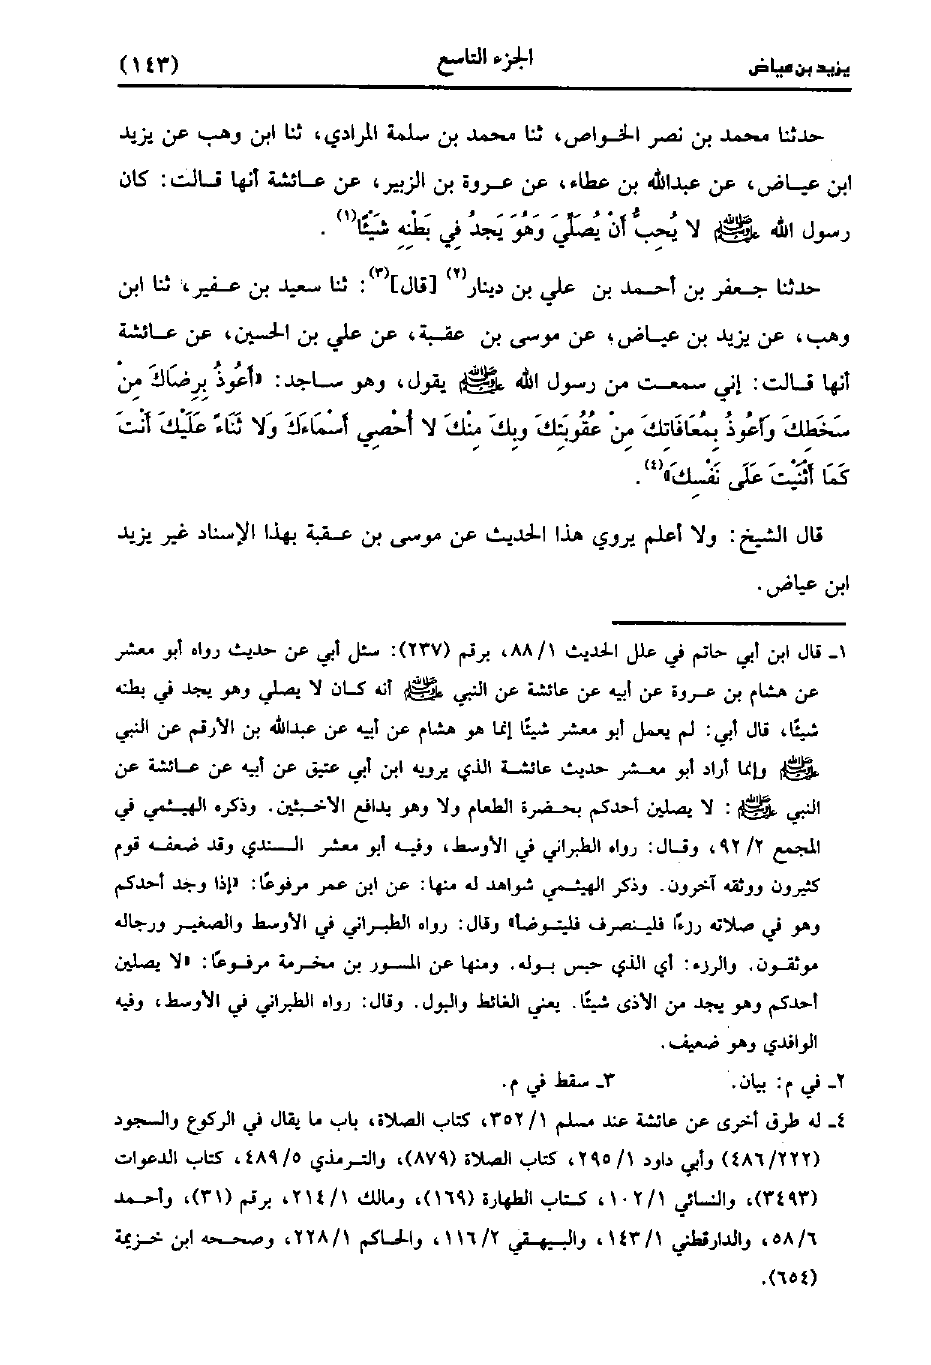 يزيد بن عياض
الجزء التاسع
(١٤٣)
حدثنا محمد بن نصر الخواص، ثنا محمد بن سلمة المرادي، ثنا ابن وهب عن يزيد
ابن عياض، عن عبدالله بن عطاء، عن عروة بن الزبير، عن عائشة أنها قالت: كان
رسول الله ﷺ لا يُحِبُّ أَنْ يُصَلِّيَ وَهُوَ يَجِدُ فِي بَطْنِهِ شَيْئًا(١).
حدثنا جعفر بن أحمد بن علي بن دينار(٢) [قال](٣): ثنا سعيد بن عفير، ثنا ابن
وهب، عن يزيد بن عياض، عن موسى بن عقبة، عن علي بن الحسين، عن عائشة
أنها قالت: إني سمعت من رسول الله ﷺ يقول، وهو ساجد: «أَعُوذُ بِرِضَاكَ مِنْ
سَخَطِكَ وَأَعُوذُ بِمُعَافَاتِكَ مِنْ عُقُوبَتِكَ وبِكَ مِنْكَ لا أُحْصِي أَسْمَاءَكَ وَلا ثَنَاءً عَلَيْكَ أَنْتَ
كَمَا أَثْنَيْتَ عَلَى نَفْسِكَ»(٤).
قال الشيخ: ولا أعلم يروي هذا الحديث عن موسى بن عقبة بهذا الإسناد غير يزيد
ابن عياض.
١ـ قال ابن أبي حاتم في علل الحديث ٨٨/١، برقم (٢٣٧): سئل أبي عن حديث رواه أبو معشر
عن هشام بن عروة عن أبيه عن عائشة عن النبي ﷺ أنه كان لا يصلي وهو يجد في بطنه
شيئًا، قال أبي: لم يعمل أبو معشر شيئًا إنما هو هشام عن أبيه عن عبدالله بن الأرقم عن النبي
ﷺ وإنما أراد أبو معشر حديث عائشة الذي يرويه ابن أبي عتيق عن أبيه عن عائشة عن
النبي ﷺ: لا يصلين أحدكم بحضرة الطعام ولا وهو يدافع الأخبثين. وذكره الهيثمي في
المجمع ٩٢/٢، وقال: رواه الطبراني في الأوسط، وفيه أبو معشر السندي وقد ضعفه قوم
كثيرون ووثقه آخرون. وذكر الهيثمي شواهد له منها: عن ابن عمر مرفوعًا: «إذا وجد أحدكم
وهو في صلاته رزءًا فلينصرف فليتوضأ» وقال: رواه الطبراني في الأوسط والصغير ورجاله
موثقون. والرزء: أي الذي حبس بوله. ومنها عن المسور بن مخرمة مرفوعًا: «لا يصلين
أحدكم وهو يجد من الأذى شيئًا. يعني الغائط والبول. وقال: رواه الطبراني في الأوسط، وفيه
الواقدي وهو ضعيف.
٢ـ في م: بيان. ٣ـ سقط في م.
٤ـ له طرق أخرى عن عائشة عند مسلم ٣٥٢/١، كتاب الصلاة، باب ما يقال في الركوع والسجود
(٤٨٦/٢٢٢) وأبي داود ٢٩٥/١، كتاب الصلاة (٨٧٩)، والترمذي ٤٨٩/٥، كتاب الدعوات
(٣٤٩٣)، والنسائي ١٠٢/١، كتاب الطهارة (١٦٩)، ومالك ٢١٤/١، برقم (٣١)، وأحمد
٥٨/٦، والدارقطني ١٤٣/١، والبيهقي ١١٦/٢، والحاكم ٢٢٨/١، وصححه ابن خزيمة
(٦٥٤).